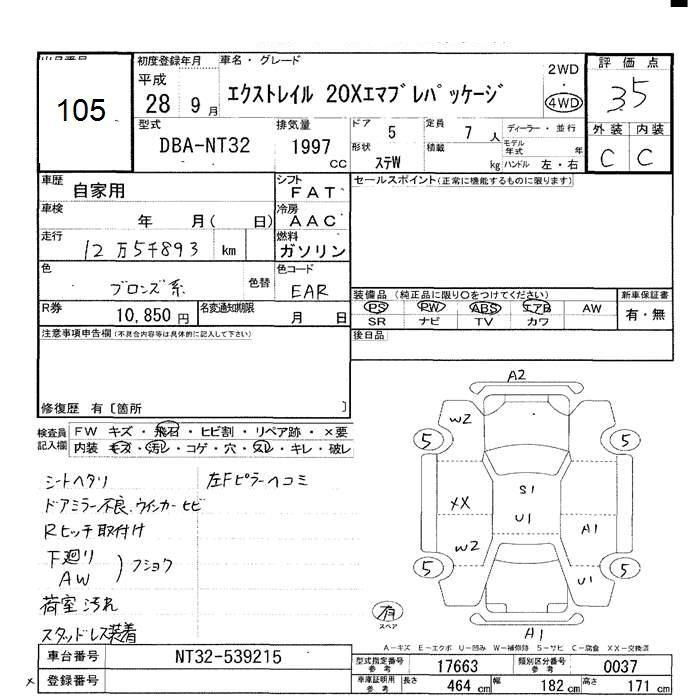 出品番号
105
初度登録年月
平成
28 9月
車名・グレード
エクストレイル 20Xエマブレパッケージ
2WD
4WD
評価点
3.5
外装 内装
C C
型式
DBA-NT32
排気量
1997
CC
ドア
5
形状
ステW
定員
7 人
積載
kg
ディーラー・並行
モデル年式 年
ハンドル 左・右
車歴
自家用
シフト
FAT
車検
年 月( 日)
冷房
AAC
走行
12万5千893 km
燃料
ガソリン
色
ブロンズ系
色替
色コード
EAR
R券
10,850円
名変通知期限
月 日
セールスポイント(正常に機能するものに限ります)
装備品(純正品に限り○をつけてください)
PS PW ABS エアB AW
SR ナビ TV カワ
新車保証書
有・無
後日品
注意事項申告欄(不具合内容等は具体的に記入して下さい)
修復歴 有〔箇所 〕
検査員記入欄
FW キズ・飛石・ヒビ割・リペア跡・×要
内装 キズ・汚レ・コゲ・穴・スレ・キレ・破レ
シートヘタリ
左Fピラーヘコミ
ドアミラー不良、ウインカーヒビ
Rヒッチ取付け
下廻り
AW
フショク
荷室汚れ
スタッドレス装着
A2
W2
5 5
XX
S1
U1
A1
W2
U1
5 5
A1
有
スペア
A-キズ E-エクボ U-凹み W-補修跡 S-サビ C-腐食 XX-交換済
車台番号
NT32-539215
× 登録番号
型式指定番号
参考
17663
類別区分番号
参考
0037
車庫証明用
参考
長さ 464 cm 幅 182 cm 高さ 171 cm